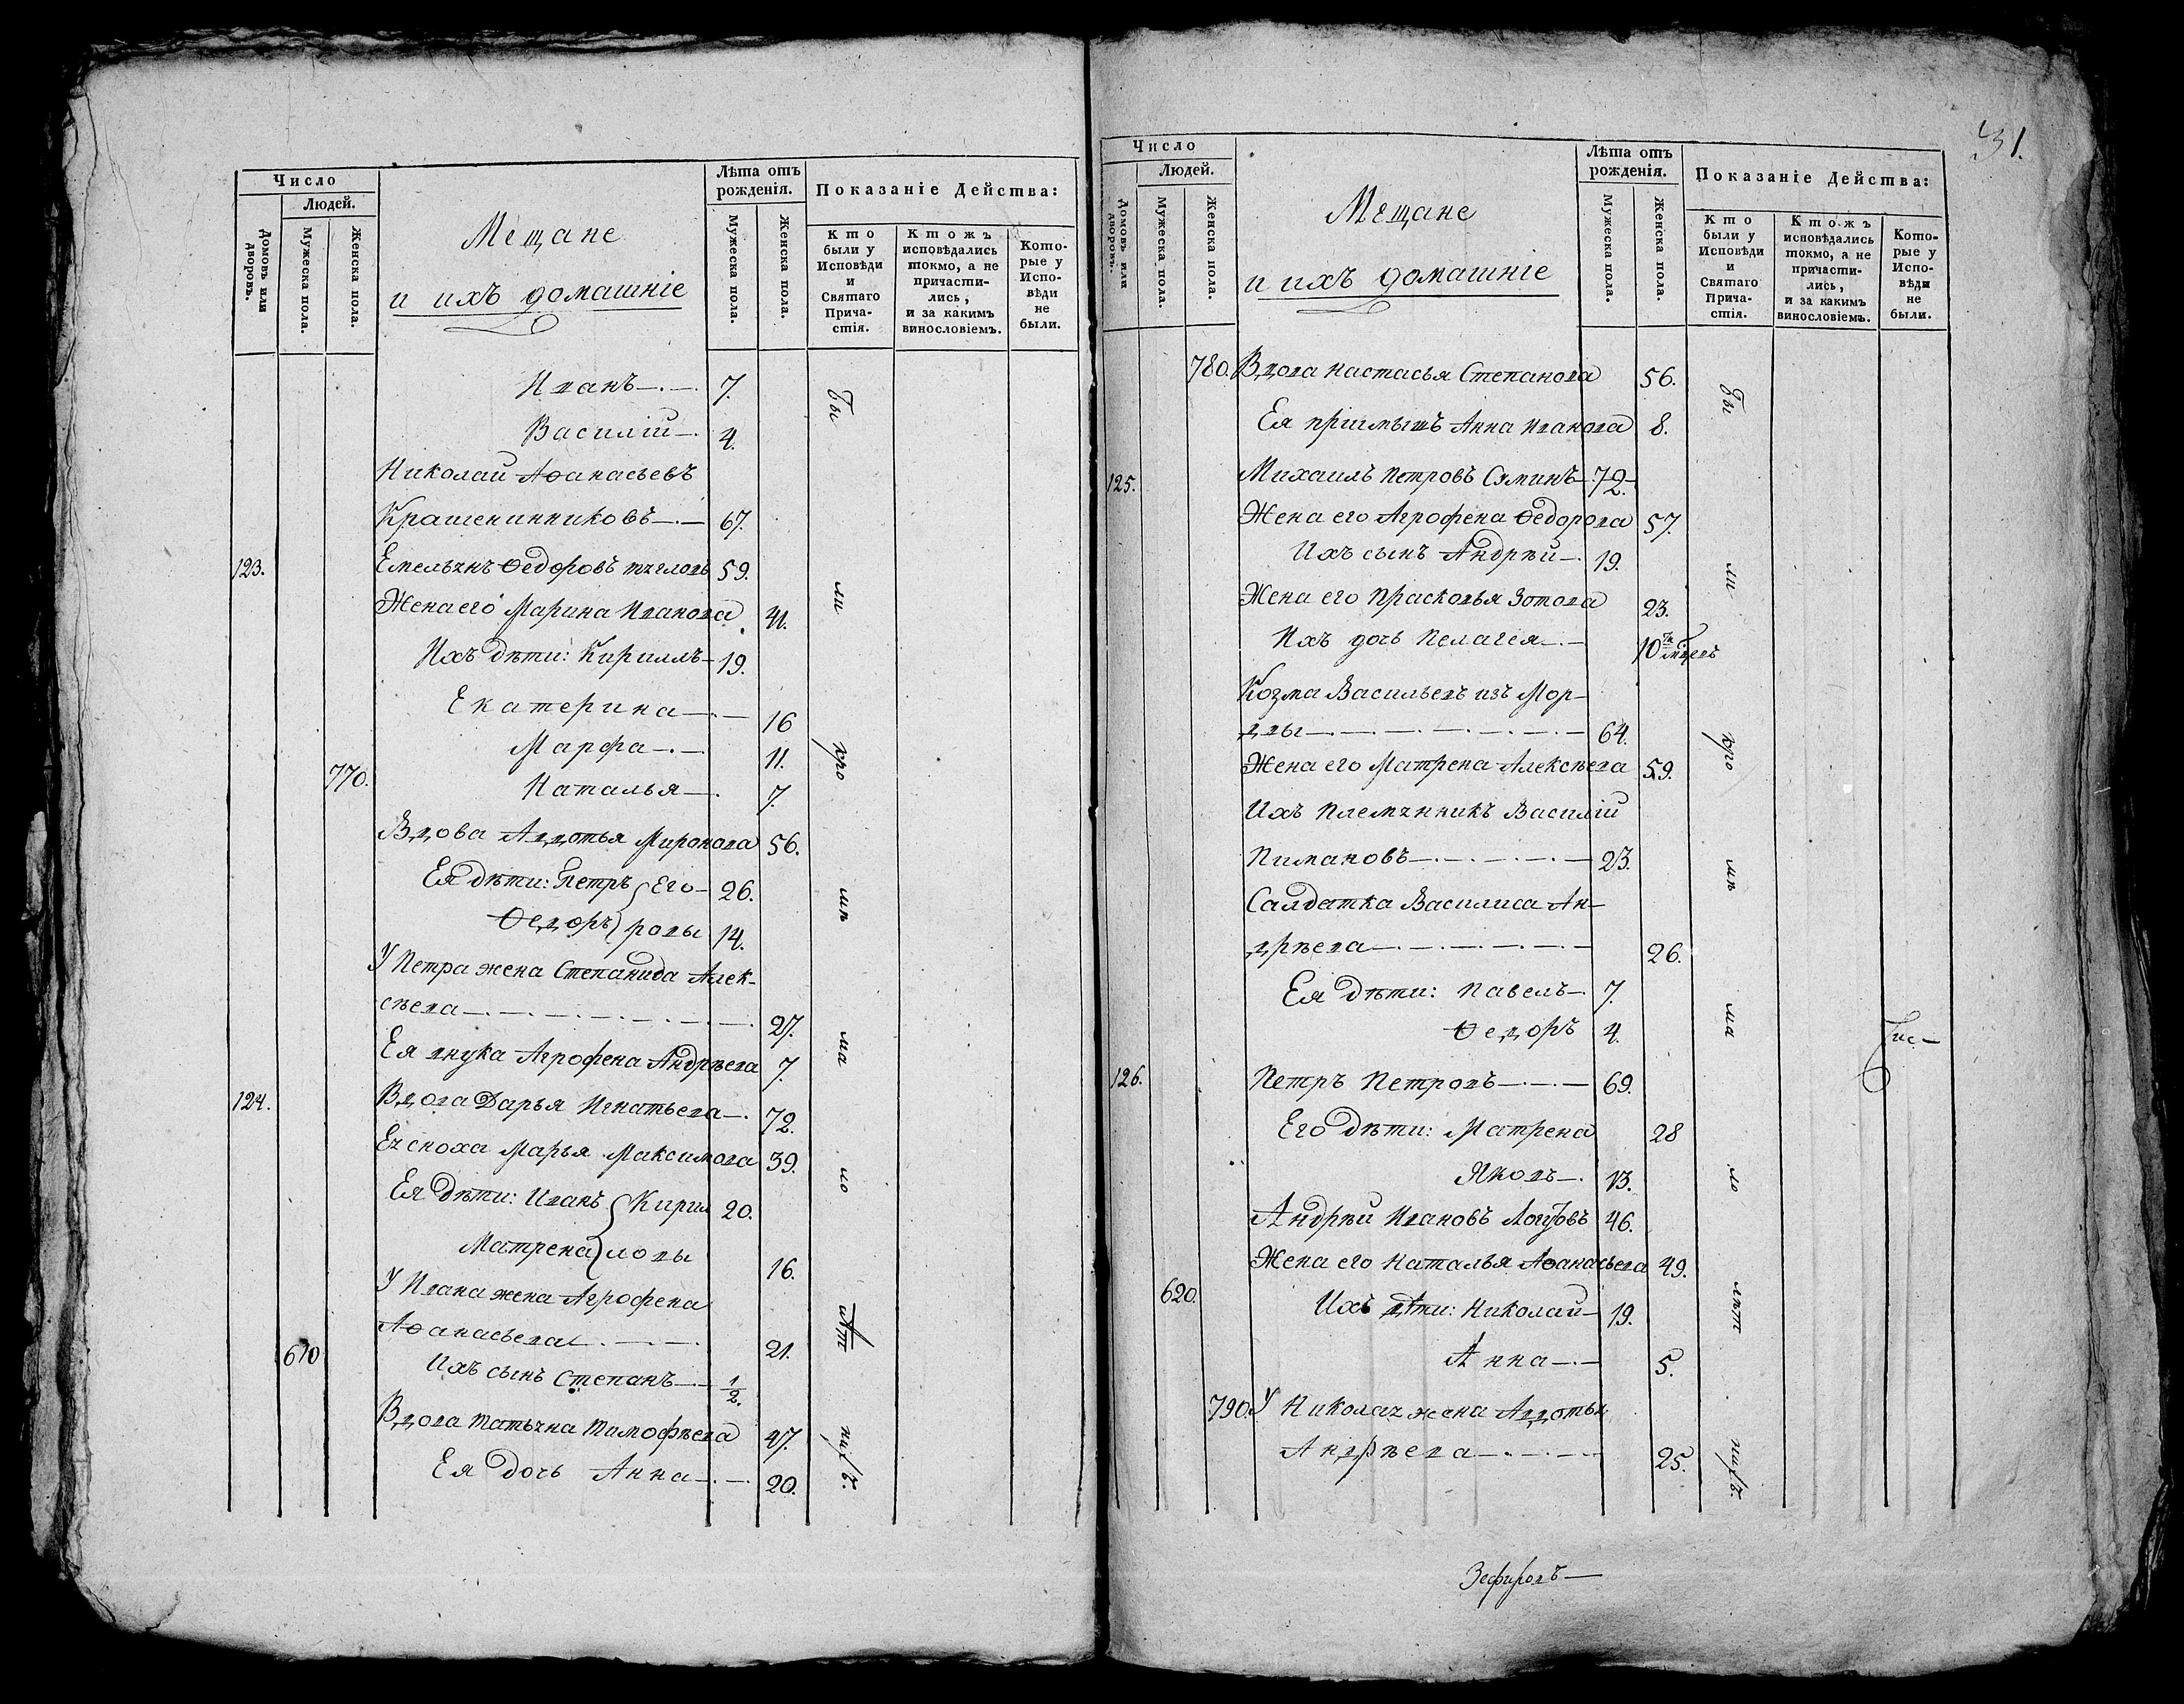 Число
Людей.
Домовъ или дворовъ.
Мужеска пола.
Женска пола.
Мещане
и ихъ домашніе
Лѣта отъ рожденія.
Мужеска пола.
Женска пола.
Показаніе Действа:
Кто были у Исповѣди и Святаго Прича-стія.
Ктожъ исповѣдались токмо, а не причасти-лись, и за какимъ винословіемъ.
Кото-рые у Испо-вѣди не были.
Иванъ 7.
Василій 4.
Николай Аѳанасьевъ
Крашенинниковъ 67.
123. Емельянъ Ѳедоровъ 59.
Жена его Марина Иванова 41.
Ихъ дѣти: Кириллъ 19.
Екатерина 16
Марфа 11.
770. Наталья 7.
Вдова Авдотья Миронова 56.
Ея дѣти: Петръ Его- 26.
Ѳедоръ ровы 14.
У Петра жена Степанида Алек-
сѣева 27.
Ея внука Агрофена Андрѣева 7.
124. Вдова Дарья Игнатьева 72.
Ея сноха Марья Максимова 39.
Ея дѣти: Иванъ Кирил 20.
Матрена ловы 16.
У Ивана жена Агрофена
Аѳанасьева 21.
610 Ихъ сынъ Степанъ 1/2.
Вдова Татьяна Тимофѣева 47.
Ея дочь Анна 20.
Бы
ли
кро
мѣ
ма
ло
лѣт
ни
31.
Число
Людей.
Домовъ или дворовъ.
Мужеска пола.
Женска пола.
Мещане
и ихъ домашніе
Лѣта отъ рожденія.
Мужеска пола.
Женска пола.
Показаніе Действа:
Кто были у Исповѣди и Святаго Прича-стія.
Ктожъ исповѣдались токмо, а не причасти-лись, и за какимъ винословіемъ.
Кото-рые у Испо-вѣди не были.
780. Вдова Настасья Степанова 56.
Ея пріимышъ Анна Иванова 8.
125. Михаилъ Петровъ Сяминъ 72.
Жена его Агрофена Ѳедорова 57.
Ихъ сынъ Андрѣй 19.
Жена его Прасковья Зотова 23.
Ихъ дочь Пелагея 10
Козма Васильевъ изъ Мор-
двы 64.
Жена его Матрена Алексѣева 59.
Ихъ племянникъ Василій
Пимановъ 23.
Салдатка Василиса Ан-
дрѣева 26.
Ея дѣти: Павелъ 7.
Ѳедоръ 4.
126. Петръ Петровъ 69.
Его дѣти: Матрена 28
Яковъ 13.
Андрѣй Ивановъ 46.
Жена его Наталья Аѳанасьева 49.
620. Ихъ дѣти: Николай 19.
Анна 5.
790. У Николая жена Авдотья
Андрѣева 25.
Бы
ли
кро
мѣ
ма
ло
лѣт
ни
Зефировъ